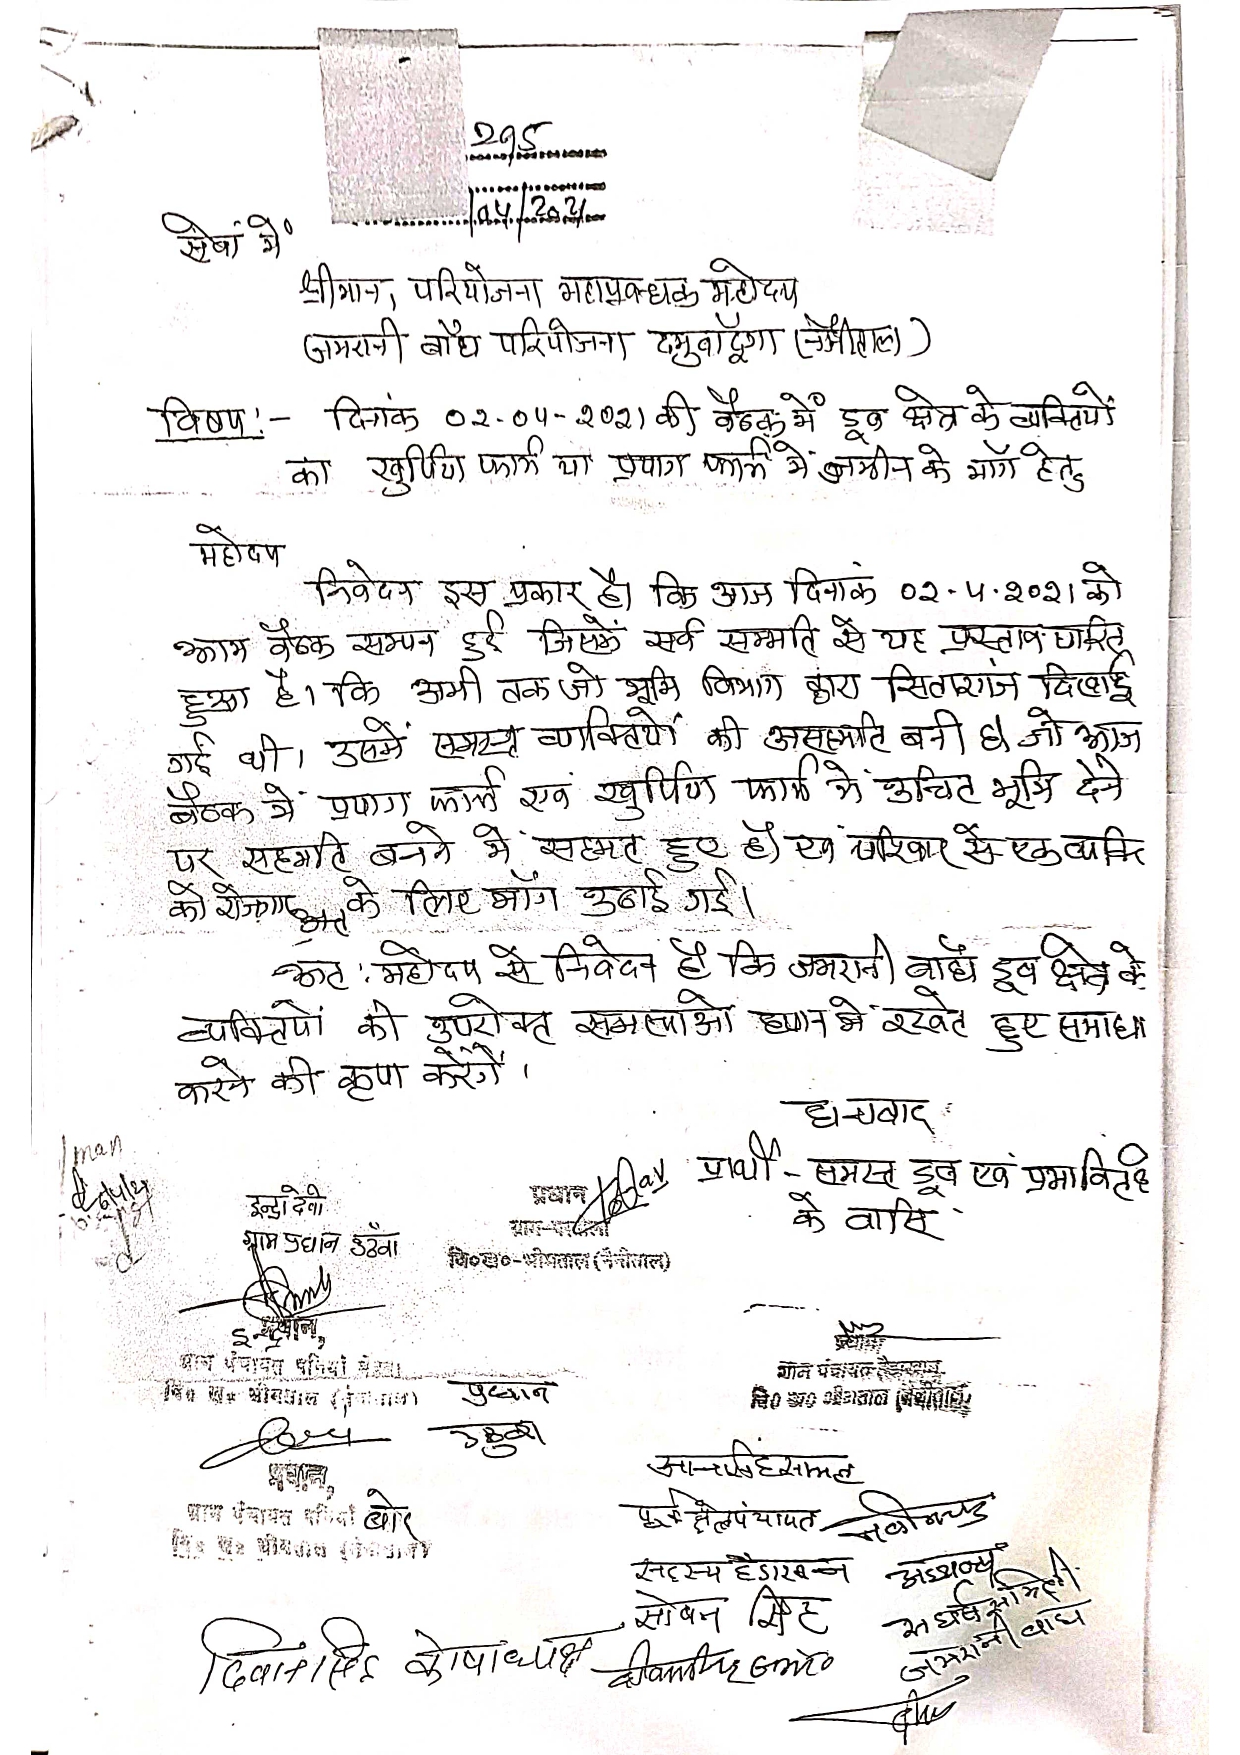 295
/04/2021
सेवां में
श्रीमान, परियोजना महाप्रबन्धक महोदय
जमरानी बाँध परियोजना दमुवाढूँगा (नैनीताल)
विषय:- दिनांक 02-04-2021 की बैठक में डूब क्षेत्र के व्यक्तियों
का खुर्पिया फार्म या प्रयाग फार्म में जमीन के माँग हेतु
महोदय
निवेदन इस प्रकार है। कि आज दिनाकं 02.4.2021 को
आम बैठक सम्पन हुई जिसमें सर्व सम्मति से यह प्रस्ताव पारित
हुआ है। कि अभी तक जो भूमि विभाग द्वारा सितारगंज दिलाई
गई थी। उसमें समस्त व्यक्तियों की असहमति बनी है। जो आज
बैठक में प्रयाग फार्म एवं खुर्पिया फार्म में उचित भूमि देने
पर सहमति बनने में सहमत हुए है। एवं परिवार से एक व्यक्ति
को रोजगार के लिए माँग उठाई गई।
अत
अत: महोदय से निवेदन है कि जमरानी बाँध डूब क्षेत्र के
व्यक्तियों की उपरोक्त समस्याओं ध्यान में रखते हुए समाधा
करने की कृपा करेंगें।
धन्यवाद
प्रार्थी - समस्त डूब एवं प्रभावित क्षे
के वासि
इन्दु देवी
प्रधान
ग्राम प्रधान उडवा
वि०ख०-भीमताल (नैनीताल)
प्रधान,
ग्राम पंचायत पनियां
वि० ख० भीमताल (नैनीताल)
प्रधान
ग्राम पंचायत हैडाखान
वि० ख० भीमताल (नैनीताल)
प्रधान
प्रधान,
ग्राम पंचायत पनियां बोर
वि० ख० भीमताल (नैनीताल)
पूर्व क्षेत्र पंचायत
सदस्य हैडाखान
अध्यक्ष
सोबन सिंह
संघर्ष समिती
जमरानी बांध
दिवान सिंह कोषाध्यक्ष